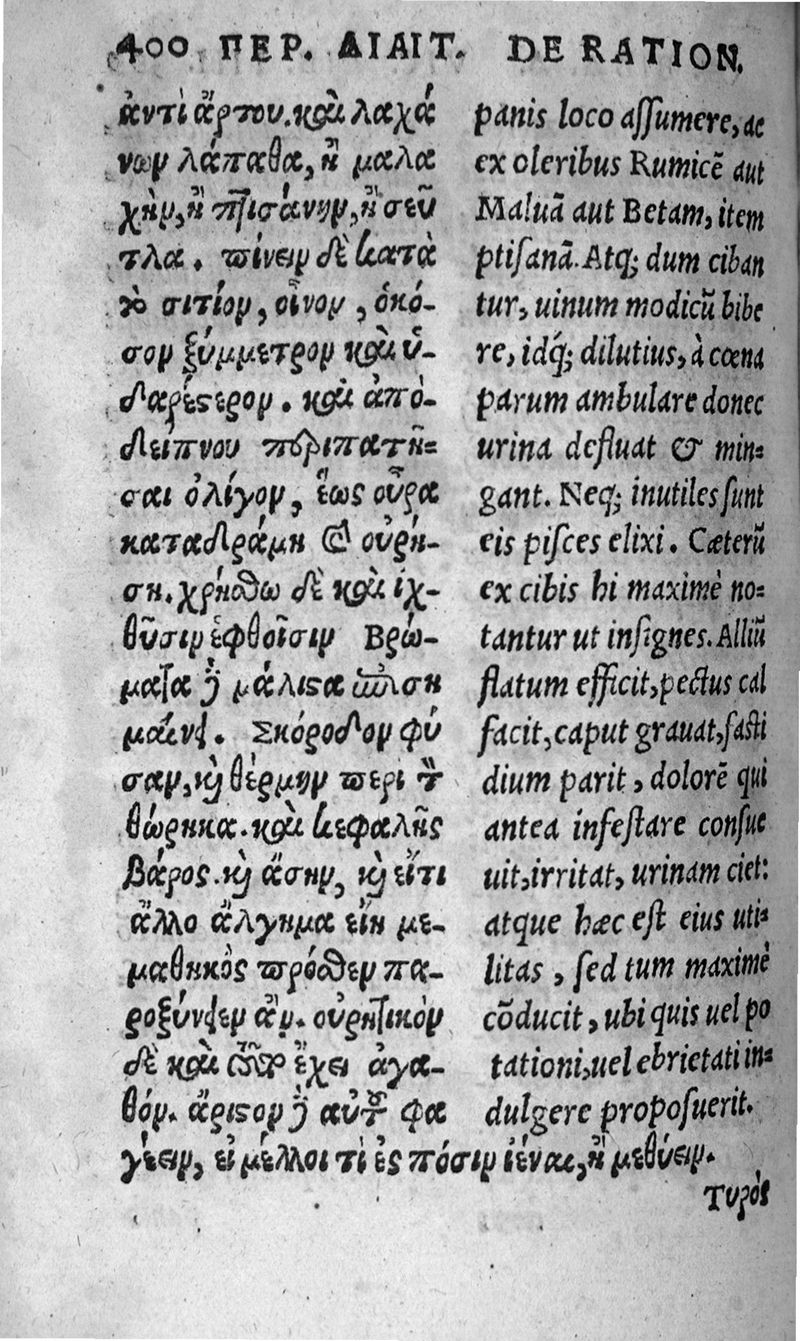 400 ΠΕΡ. ΔΙΑΙΤ. DE RATION.
ἀντὶ ἄρτου. καὶ λαχά
νων λάπαθα, ἢ μαλα
χὴν, ἢ πτισάνην, ἢ σεῦ
τλα. πίνειν δὲ κατὰ
τὸ σιτίον, οἶνον, ὁκό-
σον ξύμμετρον καὶ ὑ-
δαρέστερον. καὶ ἀπὸ-
δείπνου περιπατῆ-
σαι ὀλίγον, ἕως οὖρα
καταδράμη καὶ οὐρή-
ση. χρήσθω δὲ καὶ ἰχ-
θῦσιν ἑφθοῖσιν Βρώ-
ματα δὲ μάλιστα ἐπιση
μαίνει. Σκόροδον φύ
σαν, καὶ θέρμην περι τὸν
θώρηκα. καὶ κεφαλῆς
βάρος. καὶ ἄσην, καὶ εἴτι
ἄλλο ἄλγημα εἴη με-
μαθηκὸς πρόσθεν πα-
ροξύνειεν ἄν. οὐρητικὸν
δὲ καὶ τοῦτο ἔχει ἀγα-
θόν. ἄριστον δὲ αὐτὸ φα
γέειν, εἰ μέλλοι τὶ ἐς πόσιν ἰέναι, ἢ μεθύειν.
panis loco assumere, ac
ex oleribus Rumicē aut
Maluā aut Betam, item
ptisanā. Atq; dum ciban
tur, uinum modicū bibe
re, idq́; dilutius, à cœna
parum ambulare donec
urina defluat & min=
gant. Neq; inutiles sunt
eis pisces elixi. Cæterū
ex cibis hi maximè no=
tantur ut insignes. Alliū
flatum efficit, pectus cal
facit, caput grauat, fasti
dium parit, dolorē qui
antea infestare consue
uit, irritat, urinam ciet:
atque hæc est eius uti=
litas, sed tum maximè
cōducit, ubi quis uel po
tationi, uel ebrietati in=
dulgere proposuerit.
Τυρὸς